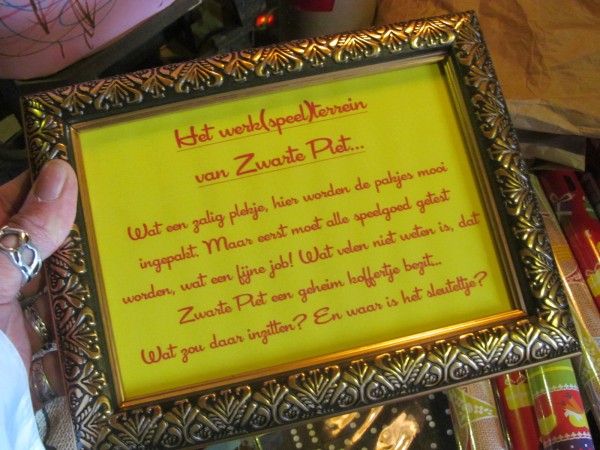 Het werk(speel)terrein
van Zwarte Piet...
Wat een zalig plekje, hier worden de pakjes mooi
ingepakt. Maar eerst moet alle speelgoed getest
worden, wat een fijne job! Wat velen niet weten is, dat
Zwarte Piet een geheim koffertje bezit...
Wat zou daar inzitten? En waar is het sleuteltje?